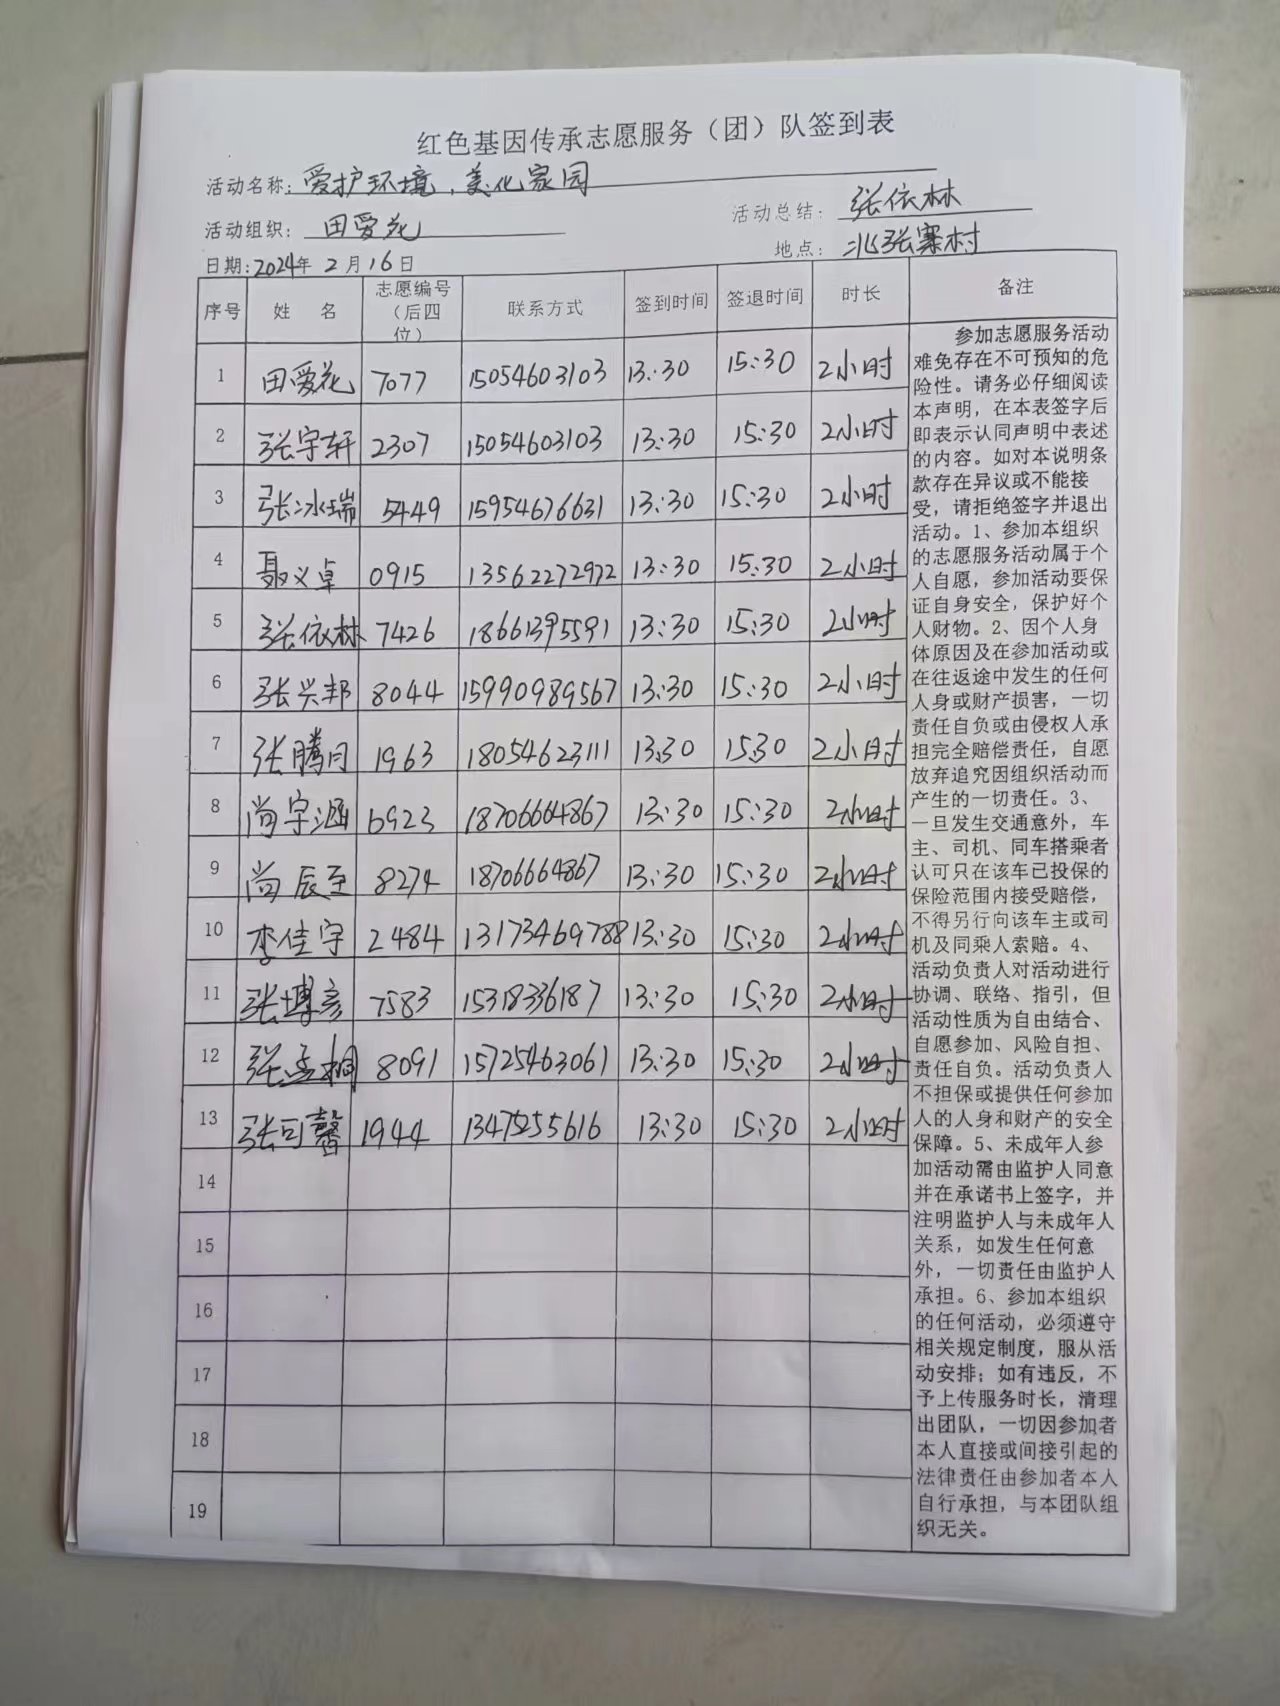 红色基因传承志愿服务（团）队签到表
活动名称：爱护环境，美化家园
活动组织：田爱花 活动总结：张依林
日期：2024年2月16日 地点：北张寨村
序号 姓 名 志愿编号（后四位） 联系方式 签到时间 签退时间 时长 备注
1 田爱花 7077 15054603103 13:30 15:30 2小时
2 张宇轩 2307 15054603103 13:30 15:30 2小时
3 张冰瑞 5449 15954676631 13:30 15:30 2小时
4 聂义卓 0915 13562272972 13:30 15:30 2小时
5 张依林 7426 18661395591 13:30 15:30 2小时
6 张兴邦 8044 15990989567 13:30 15:30 2小时
7 张腾月 1963 18054623111 13:30 15:30 2小时
8 尚宇涵 6923 18706664867 13:30 15:30 2小时
9 尚辰至 8274 18706664867 13:30 15:30 2小时
10 李佳宇 2484 13173469788 13:30 15:30 2小时
11 张博彦 7583 15318336187 13:30 15:30 2小时
12 张孟桐 8091 15725463061 13:30 15:30 2小时
13 张可馨 1944 13475255616 13:30 15:30 2小时
14
15
16
17
18
19
参加志愿服务活动
难免存在不可预知的危
险性。请务必仔细阅读
本声明，在本表签字后
即表示认同声明中表述
的内容。如对本说明条
款存在异议或不能接
受，请拒绝签字并退出
活动。1、参加本组织
的志愿服务活动属于个
人自愿，参加活动要保
证自身安全，保护好个
人财物。2、因个人身
体原因及在参加活动或
在往返途中发生的任何
人身或财产损害，一切
责任自负或由侵权人承
担完全赔偿责任，自愿
放弃追究因组织活动而
产生的一切责任。3、
一旦发生交通意外，车
主、司机、同车搭乘者
认可只在该车已投保的
保险范围内接受赔偿，
不得另行向该车主或司
机及同乘人索赔。4、
活动负责人对活动进行
协调、联络、指引，但
活动性质为自由结合、
自愿参加、风险自担、
责任自负。活动负责人
不担保或提供任何参加
人的人身和财产的安全
保障。5、未成年人参
加活动需由监护人同意
并在承诺书上签字，并
注明监护人与未成年人
关系，如发生任何意
外，一切责任由监护人
承担。6、参加本组织
的任何活动，必须遵守
相关规定制度，服从活
动安排；如有违反，不
予上传服务时长，清理
出团队，一切因参加者
本人直接或间接引起的
法律责任由参加者本人
自行承担，与本团队组
织无关。